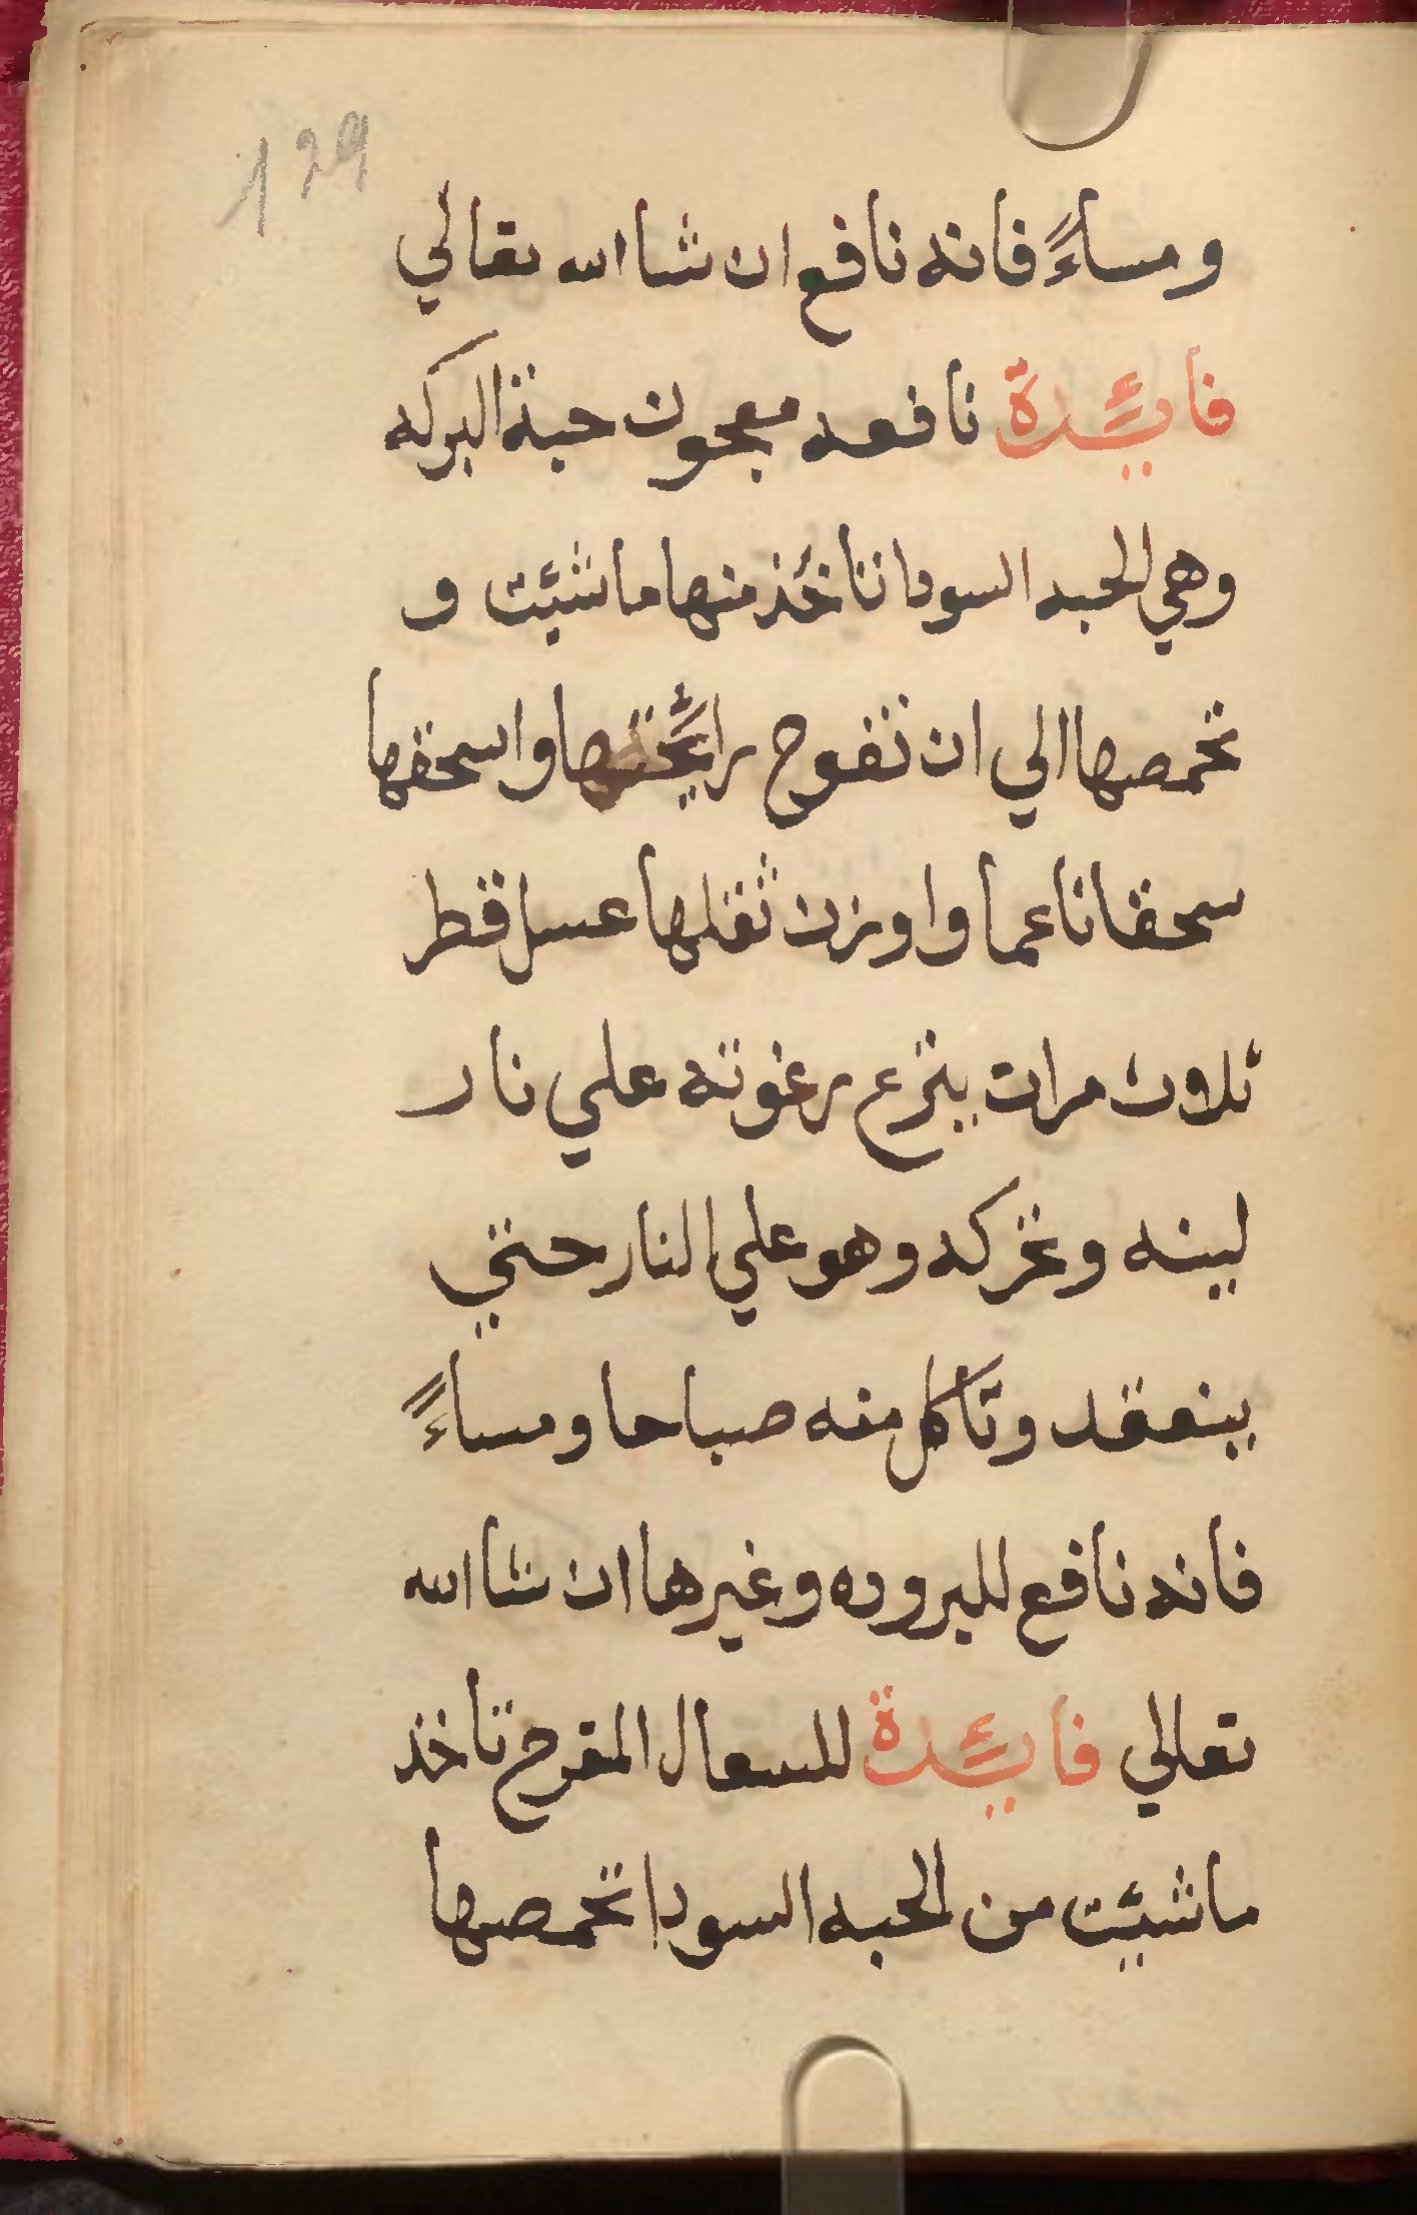 129
ومساءً فانه نافع ان شا الله تعالي
فايئدة نافعه معجون حبة البركه
وهي الحبه السودا تاخذ منها ما شيئت و
تحمصها الي ان تفوح رايئحتها واسحقها
سحقا ناعما واوزن ثقلها عسل قطر
ثلاوث مرات ينزع رغوته علي نار
لينه وتحركه وهو علي النار حتي
ينعقد وتاكل منه صباحا ومساءً
فانه نافع للبروده وغيرها ان شا الله
تعالي فايئدة للسعال المقرح تاخذ
ما شيئت من الحبه السودا تحمصها